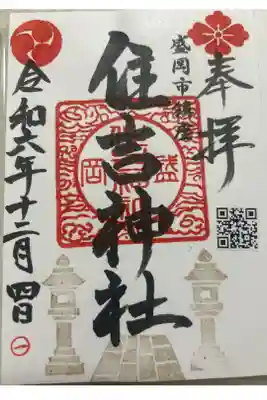 奉拝
盛岡市鎮座
住吉神社
盛岡
令和六年十二月四日